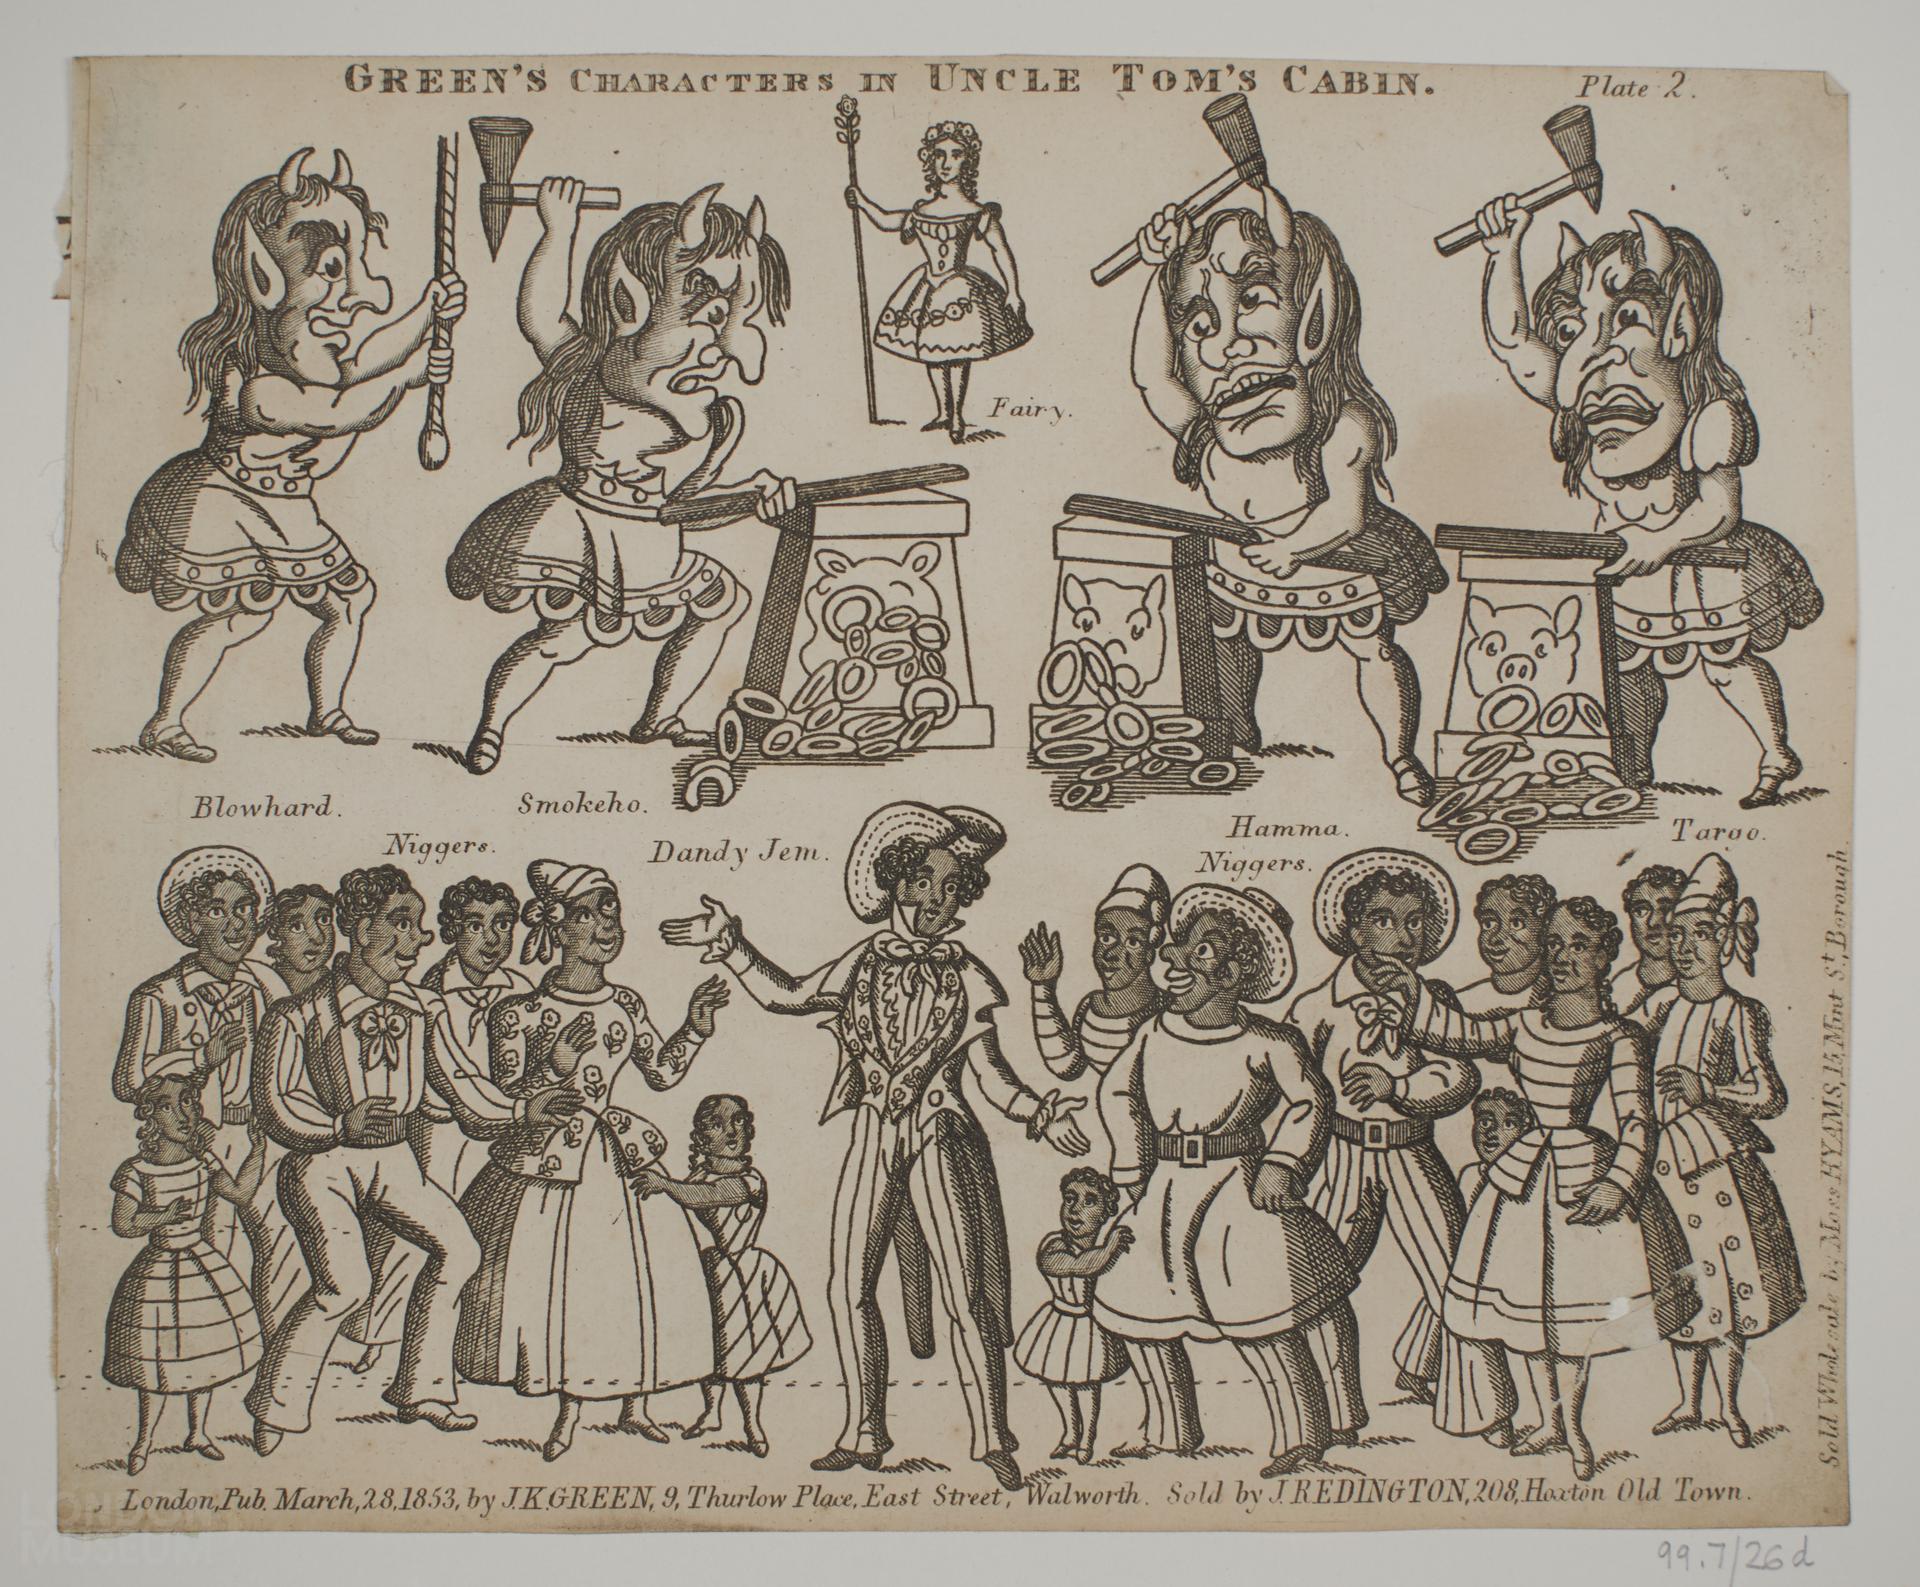 GREEN'S CHARACTERS IN UNCLE TOM'S CABIN.
Plate 2.
Fairy.
Blowhard.
Smokeho.
Hamma.
Targo.
Niggers.
Dandy Jem.
Niggers.
Sold Wholesale by Moss HYAMS, 15, Mint St., Borough.
London, Pub. March, 28, 1853, by J.K.GREEN, 9, Thurlow Place, East Street, Walworth. Sold by J. REDINGTON, 208, Hoxton Old Town.
LONDON
MUSEUM
99.7/26d